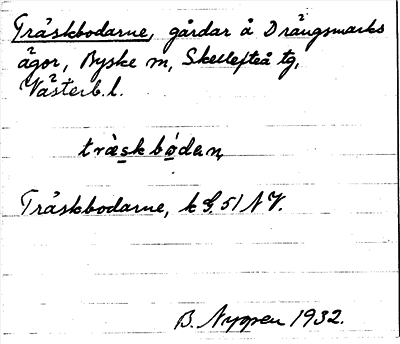 Träskbodarne, gårdar å Drängsmarks
ägor, Byske sn, Skellefteå tg,
Västerb. l.
träskbóda,n
Träskbodarne, k G. 51 NV.
B. Nyggen 1932.